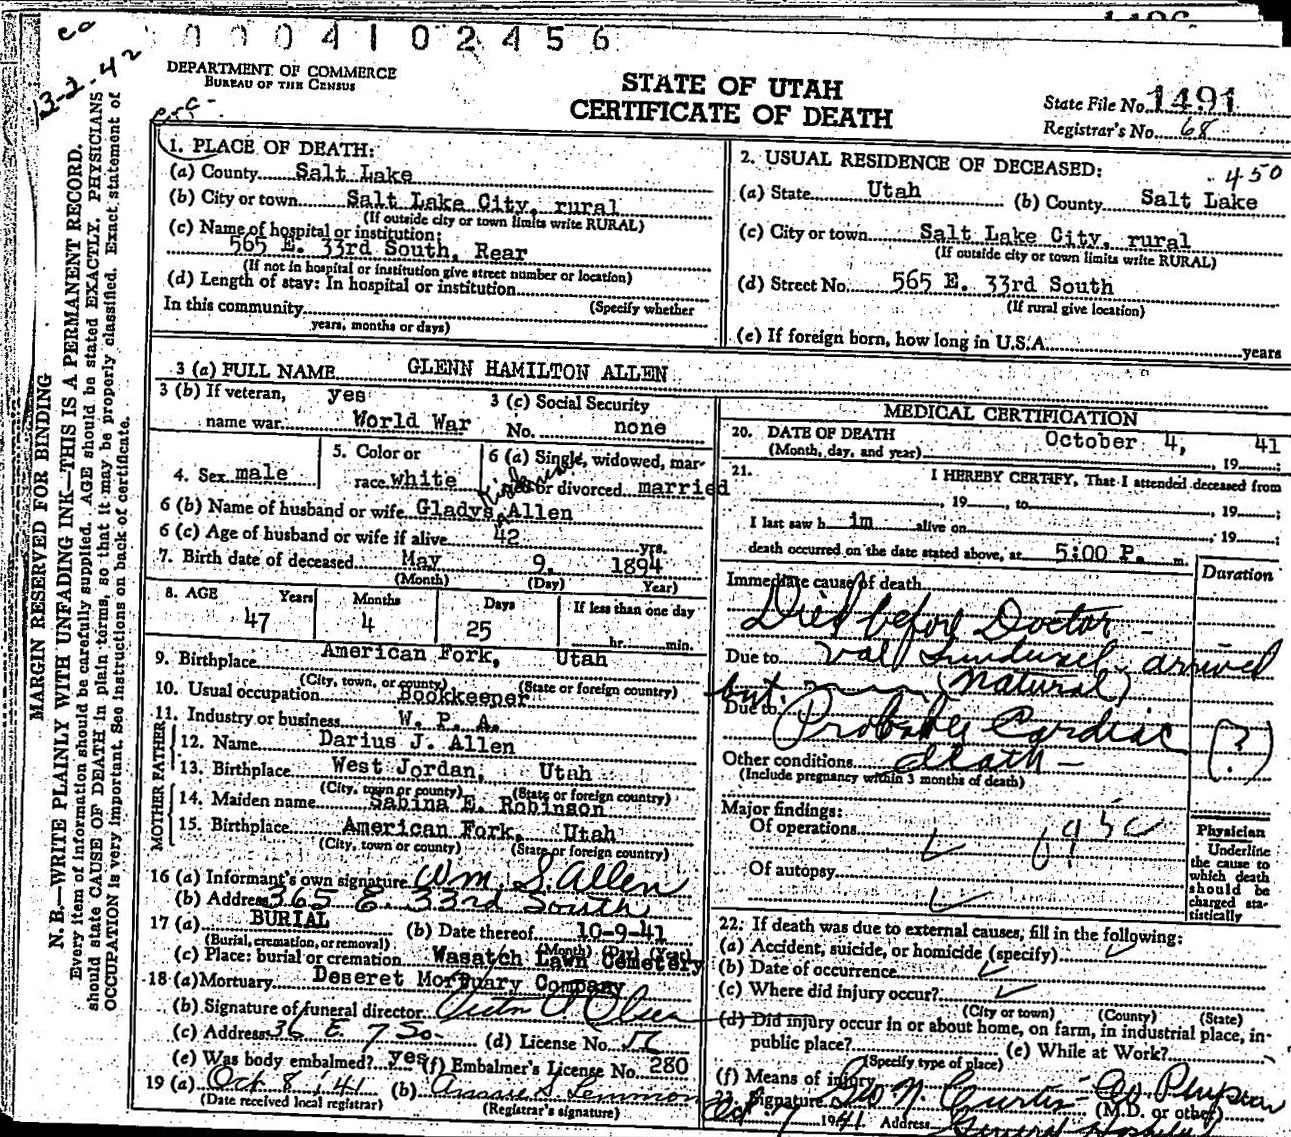 0004102456
12-2-42
DEPARTMENT OF COMMERCE
BUREAU OF THE CENSUS
STATE OF UTAH
CERTIFICATE OF DEATH
State File No. 1491
Registrar's No. 68
MARGIN RESERVED FOR BINDING
N. B.—WRITE PLAINLY WITH UNFADING INK—THIS IS A PERMANENT RECORD.
Every item of information should be carefully supplied. AGE should be stated EXACTLY. PHYSICIANS
should state CAUSE OF DEATH in plain terms, so that it may be properly classified. Exact statement of
OCCUPATION is very important. See instructions on back of certificate.
1. PLACE OF DEATH:
(a) County Salt Lake
(b) City or town Salt Lake City, rural
(If outside city or town limits write RURAL)
(c) Name of hospital or institution:
565 E. 33rd South, Rear
(If not in hospital or institution give street number or location)
(d) Length of stay: In hospital or institution
(Specify whether
In this community
years, months or days)
2. USUAL RESIDENCE OF DECEASED:
450
(a) State Utah (b) County Salt Lake
(c) City or town Salt Lake City, rural
(If outside city or town limits write RURAL)
(d) Street No. 565 E. 33rd South
(If rural give location)
(e) If foreign born, how long in U.S.A. years
3 (a) FULL NAME GLENN HAMILTON ALLEN
3 (b) If veteran, yes
name war. World War
3 (c) Social Security
No. none
4. Sex male
5. Color or
race white
6 (a) Single, widowed, mar-
ried or divorced married
6 (b) Name of husband or wife Gladys Allen
6 (c) Age of husband or wife if alive 42 yrs.
7. Birth date of deceased May 9, 1894
(Month) (Day) Year)
8. AGE Years Months Days If less than one day
47 4 25 hr. min.
9. Birthplace American Fork, Utah
(City, town, or county) (State or foreign country)
10. Usual occupation Bookkeeper
11. Industry or business W. P. A.
FATHER
12. Name Darius J. Allen
13. Birthplace West Jordan, Utah
(City, town or county) (State or foreign country)
MOTHER
14. Maiden name Sabina E. Robinson
15. Birthplace American Fork, Utah
(City, town or county) (State or foreign country)
16 (a) Informant's own signature Wm S. Allen
(b) Address 365 E. 33rd South
17 (a) BURIAL (b) Date thereof 10-9-41
(Burial, cremation, or removal) (Month) (Day) (Year)
(c) Place: burial or cremation Wasatch Lawn Cemetery
18 (a) Mortuary Deseret Mortuary Company
(b) Signature of funeral director Olsen
(c) Address 36 E 7 So. (d) License No.
(e) Was body embalmed? yes (f) Embalmer's License No. 280
19 (a) Oct 8 '41 (b) Annie S Lemmon
(Date received local registrar) (Registrar's signature)
MEDICAL CERTIFICATION
20. DATE OF DEATH October 4, 1941;
(Month, day, and year)
21. I HEREBY CERTIFY, That I attended deceased from
, 19 , to , 19 ;
I last saw h im alive on , 19 ;
death occurred on the date stated above, at 5:00 P. m.
Duration
Immediate cause of death
Died before Doctor -
Due to Val arrived
but (natural)
Due to Probable Cardiac (?)
death -
Other conditions
(Include pregnancy within 3 months of death)
Major findings:
Of operations
Of autopsy
Physician
Underline
the cause to
which death
should be
charged sta-
tistically
22. If death was due to external causes, fill in the following:
(a) Accident, suicide, or homicide (specify)
(b) Date of occurrence
(c) Where did injury occur?
(City or town) (County) (State)
(d) Did injury occur in or about home, on farm, in industrial place, in
public place? (e) While at Work?
(Specify type of place)
(f) Means of injury
23. Signature Geo N. Curtis Co. Physician
(M.D. or other)
Oct. 7 1941. Address General Hospital